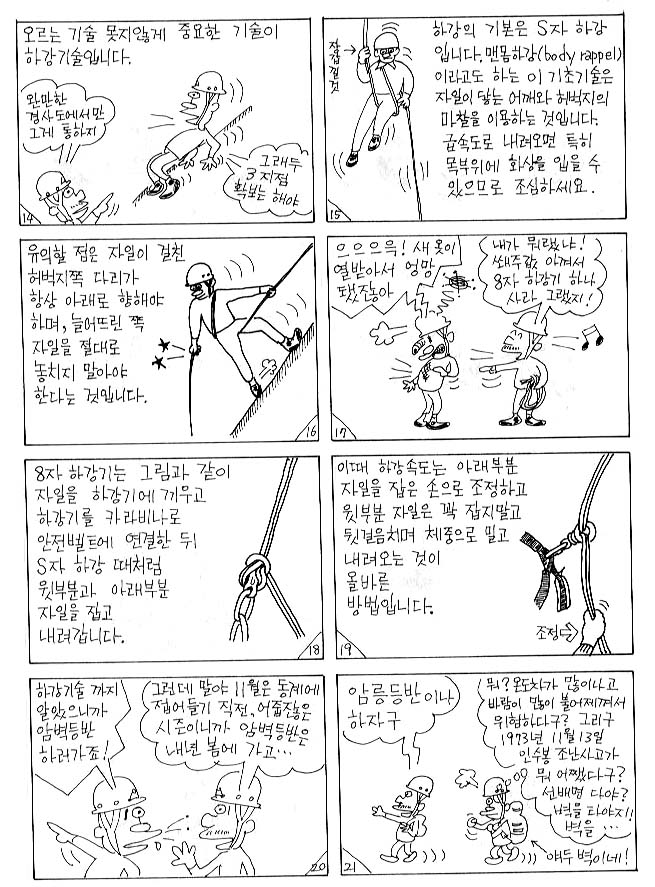 오르는 기술 못지않게 중요한 기술이
하강기술입니다.
완만한
경사도에서만
그게 통하지
그래두
3지점
확보는 해야
14
하강의 기본은 S자 하강
입니다. 맨몸하강(body rappel)
이라고도 하는 이 기초기술은
자일이 닿는 어깨와 허벅지의
마찰을 이용하는 것입니다.
급속도로 내려오면 특히
목부위에 화상을 입을 수
있으므로 조심하세요.
15
유의할 점은 자일이 걸친
허벅지쪽 다리가
항상 아래로 향해야
하며, 늘어뜨린 쪽
자일을 절대로
놓치지 말아야
한다는 것입니다.
16
으으으윽! 새 옷이
열받아서 엉망
됐잖아
내가 뭐랬냐!
쐬주값 아껴서
8자 하강기 하나
사라 그랬지!
17
8자 하강기는 그림과 같이
자일을 하강기에 끼우고
하강기를 카라비나로
안전벨트에 연결한 뒤
S자 하강 때처럼
윗부분과 아래부분
자일을 잡고
내려갑니다.
18
이때 하강속도는 아래부분
자일을 잡은 손으로 조정하고
윗부분 자일은 꽉 잡지말고
뒷걸음치며 체중으로 밀고
내려오는 것이
올바른
방법입니다.
조정
19
하강기술 까지
알았으니까
암벽등반
하러가죠!
그런데 말야 11월은 동계에
접어들기 직전, 어줍잖은
시즌이니까 암벽등반은
내년 봄에 가고...
20
암릉등반이나
하자구
뭐? 온도차가 많이나고
바람이 많이 불어제껴서
위험하다구? 그리구
1973년 11월 13일
인수봉 조난사고가
뭐 어쨌다구?
선배면 다야?
벽을 타야지!
벽을 ...
얘두 벽이네!
21